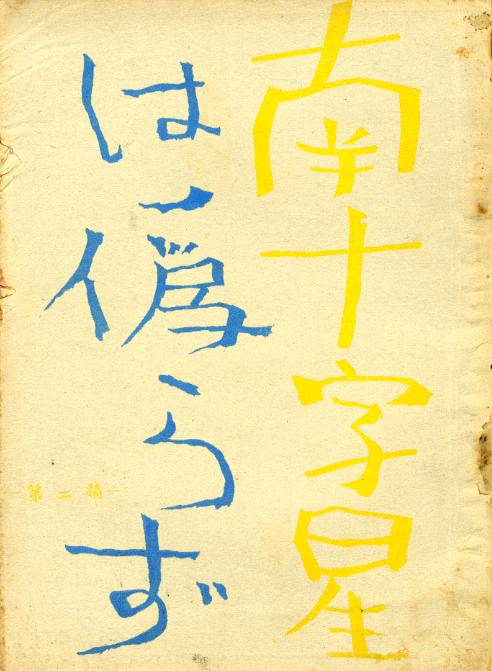 南十字星
は偽らず
—第二稿—